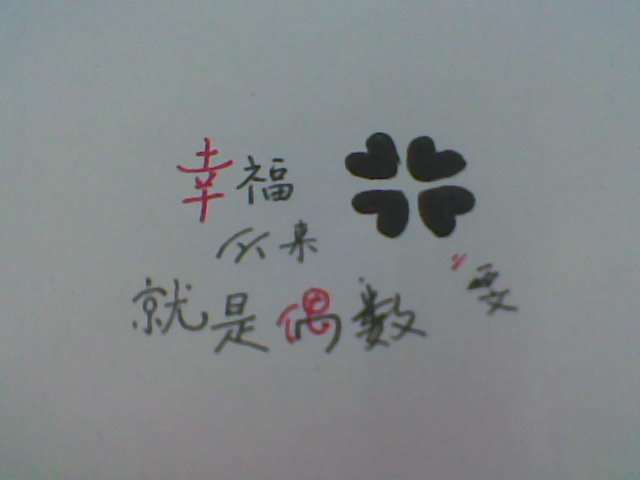 幸福
从来
就是偶数
雯